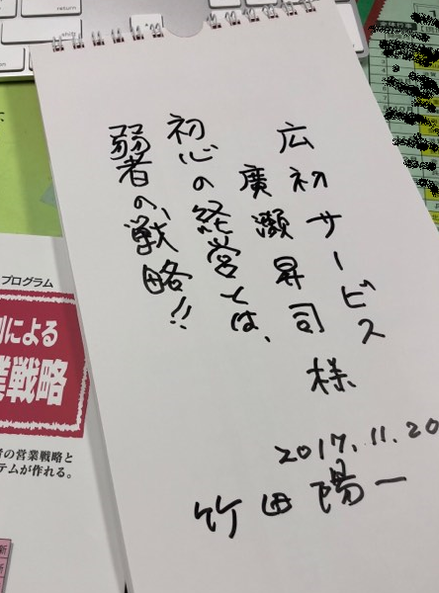 広初サービス
廣瀬昇司様
初心の経営とは、
弱者の戦略!!
2017.11.20
竹田陽一
プログラム
による
業戦略
の営業戦略と
テムが作れる。
return
shift